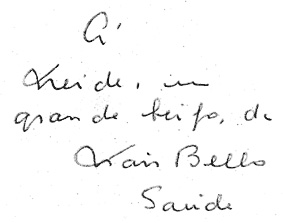 À
Neide, um
grande beijo, da
Bello
Saúde